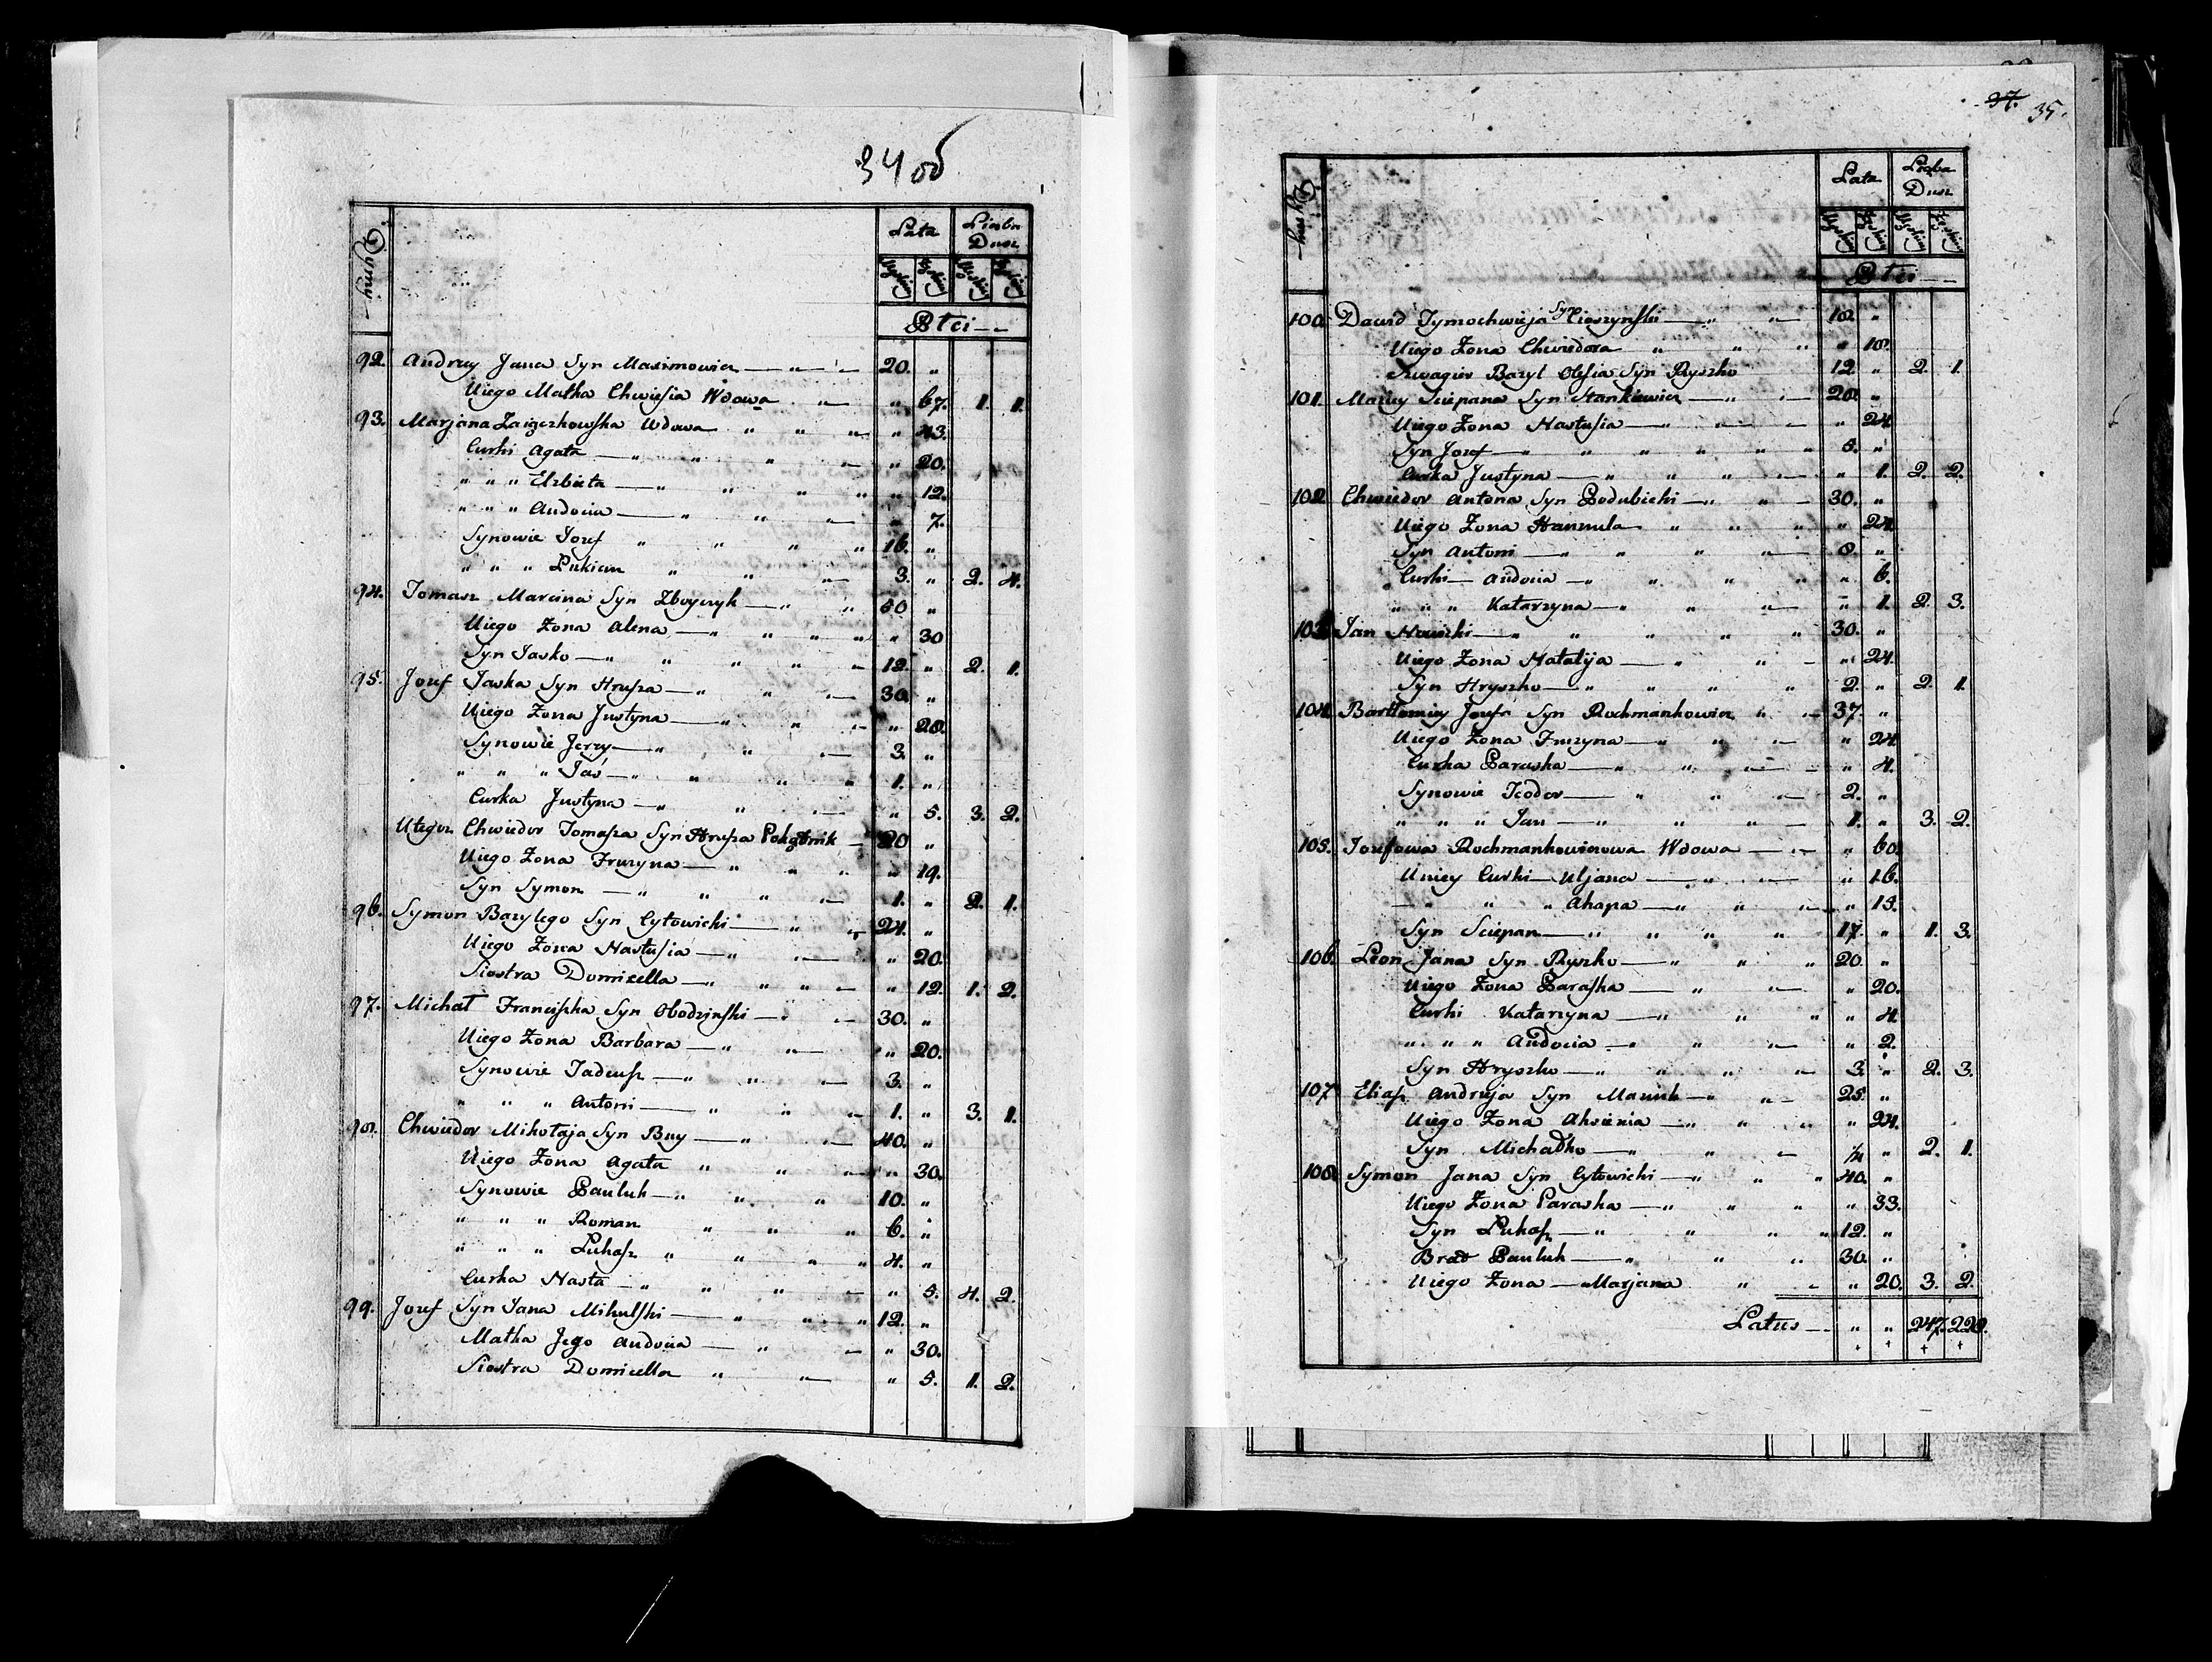 34 об
Dymy
Lata
Liczba Dusz
Męskiey Żeńskiey Męskiey Żeńskiey
Płci
92. Andrzey Jana Syn Maximowicz — 20. "
Uiego Matka Chwiesia Wdowa " 67. 1. 1.
93. Marjana Zaiączkowska Wdowa " " " " 43.
Curki Agata — " " " " 20.
" " " Elzbieta — " " " " 12.
" " " Audocia — " " " 7.
Synowie Jozef " " " " 16. "
" " " Łukian " " 3. " 2. 4.
94. Tomasz Marcina Syn Zboyczyk — " " 50 "
Uiego Żona Alena — " " " " " 30
Syn Jasko — " " " " " 12. " 2. 1.
95. Jozef Jaska Syn Hrusza — " " 30. "
Uiego Żona Justyna — " " " 20.
Synowie Jerzy — " " 3. "
" " " Jaś — " " " " 1. "
Curka Justyna — " " " 5. 3. 2.
Utegoz Chwiedor Tomasza Syn Hrusza Pokątnik — 20 "
Uiego Żona Fruzyna — " " " " 19.
Syn Symon — " " " 1. " 2. 1.
96. Symon Bazylego Syn Cytowicki — " " 24. "
Uiego Żona Nastusia — " " 20.
Siostra Domicella — " " " " 12. 1. 2.
97. Michał Franciszka Syn Obodzinski — " 30. "
Uiego Żona Barbara — " " 20.
Synowie Tadeusz — " " 3. "
" " " Antoni — " " 1. " 3. 1.
98. Chwiedor Mikołaja Syn Buy — " 40. "
Uiego Żona Agata " " " 30.
Synowie Pauluk — " " " 10. "
" " " Roman " " " 6. "
" " " Łukasz " " " " 4. "
Curka Nasta — " " " " 5. 4. 2.
99. Jozef Syn Jana Mikulski — " " " 12. "
Matka Jego Audocia — " " 30.
Siostra Domicella " " 5. 1. 2.
37. 35.
Dymy
Lata
Liczba Dusz
Męskiey Żeńskiey Męskiey Żeńskiey
Płci
100. Dawid Tymochwieja Syn Cieszynski — " 18. "
Uiego Żona Chwiedora " " " " 18.
Szwagier Bazyl Olesia Syn Ryszko 12. " 2. 1.
101. Maciey Sciepana Syn Stankiewicz — " 28. "
Uiego Żona Nastusia — " " 24
Syn Jozef — " " " " " " 5. "
Curka Justyna — " " " " " 1. 2. 2.
102. Chwiedor Antona Syn Podubicki — " " 30. "
Uiego Żona Hannula " " " " 24.
Syn Antoni — " " " " 8. "
Curki — Audocia — " " " " " 6.
" " " Katarzyna — " " " " 1. 2. 3.
103. Jan — " " " " " 30. "
Uiego Żona Natalija — " " " 24.
Syn Hryszko — " " " " 2. " 2. 1.
104. Bartłomiey Jozefa Syn Rochmankowicz " 37. "
Uiego Żona Fruzyna — " " " 24.
Curka Paraska — " " " 4.
Synowie Teodor — " " 2. "
" " " Jan — " " " 1. " 3. 2.
105. Jozefowa Rochmankowiczowa Wdowa — " " 60.
Uniey Curki — Uljana — " " 16.
" " " Ahapa — " " " " 15.
Syn Sciepan — " " " " 17. " 1. 3.
106. Leon Jana Syn Ryszko — " " " 20. "
Uiego Żona Paraska — " " " 20.
Curki Katarzyna — " " " " 4.
" " " Audocia — " " " " 2.
Syn Hryszko — " " " " 3. " 2. 3.
107. Eliasz Andrzeja Syn — " " 25. "
Uiego Żona Aksienia — " " " " 24.
Syn Michałko — " " 1/4 " 2. 1.
108. Symon Jana Syn Cytowicki — " " " 40. "
Uiego Żona Paraska — " " " " 33.
Syn Łukasz — " " " " 12. "
Brat Pauluk — " " " 30. "
Uiego Żona — Marjana " " 20. 3. 2.
Latus — " " 247. 220.